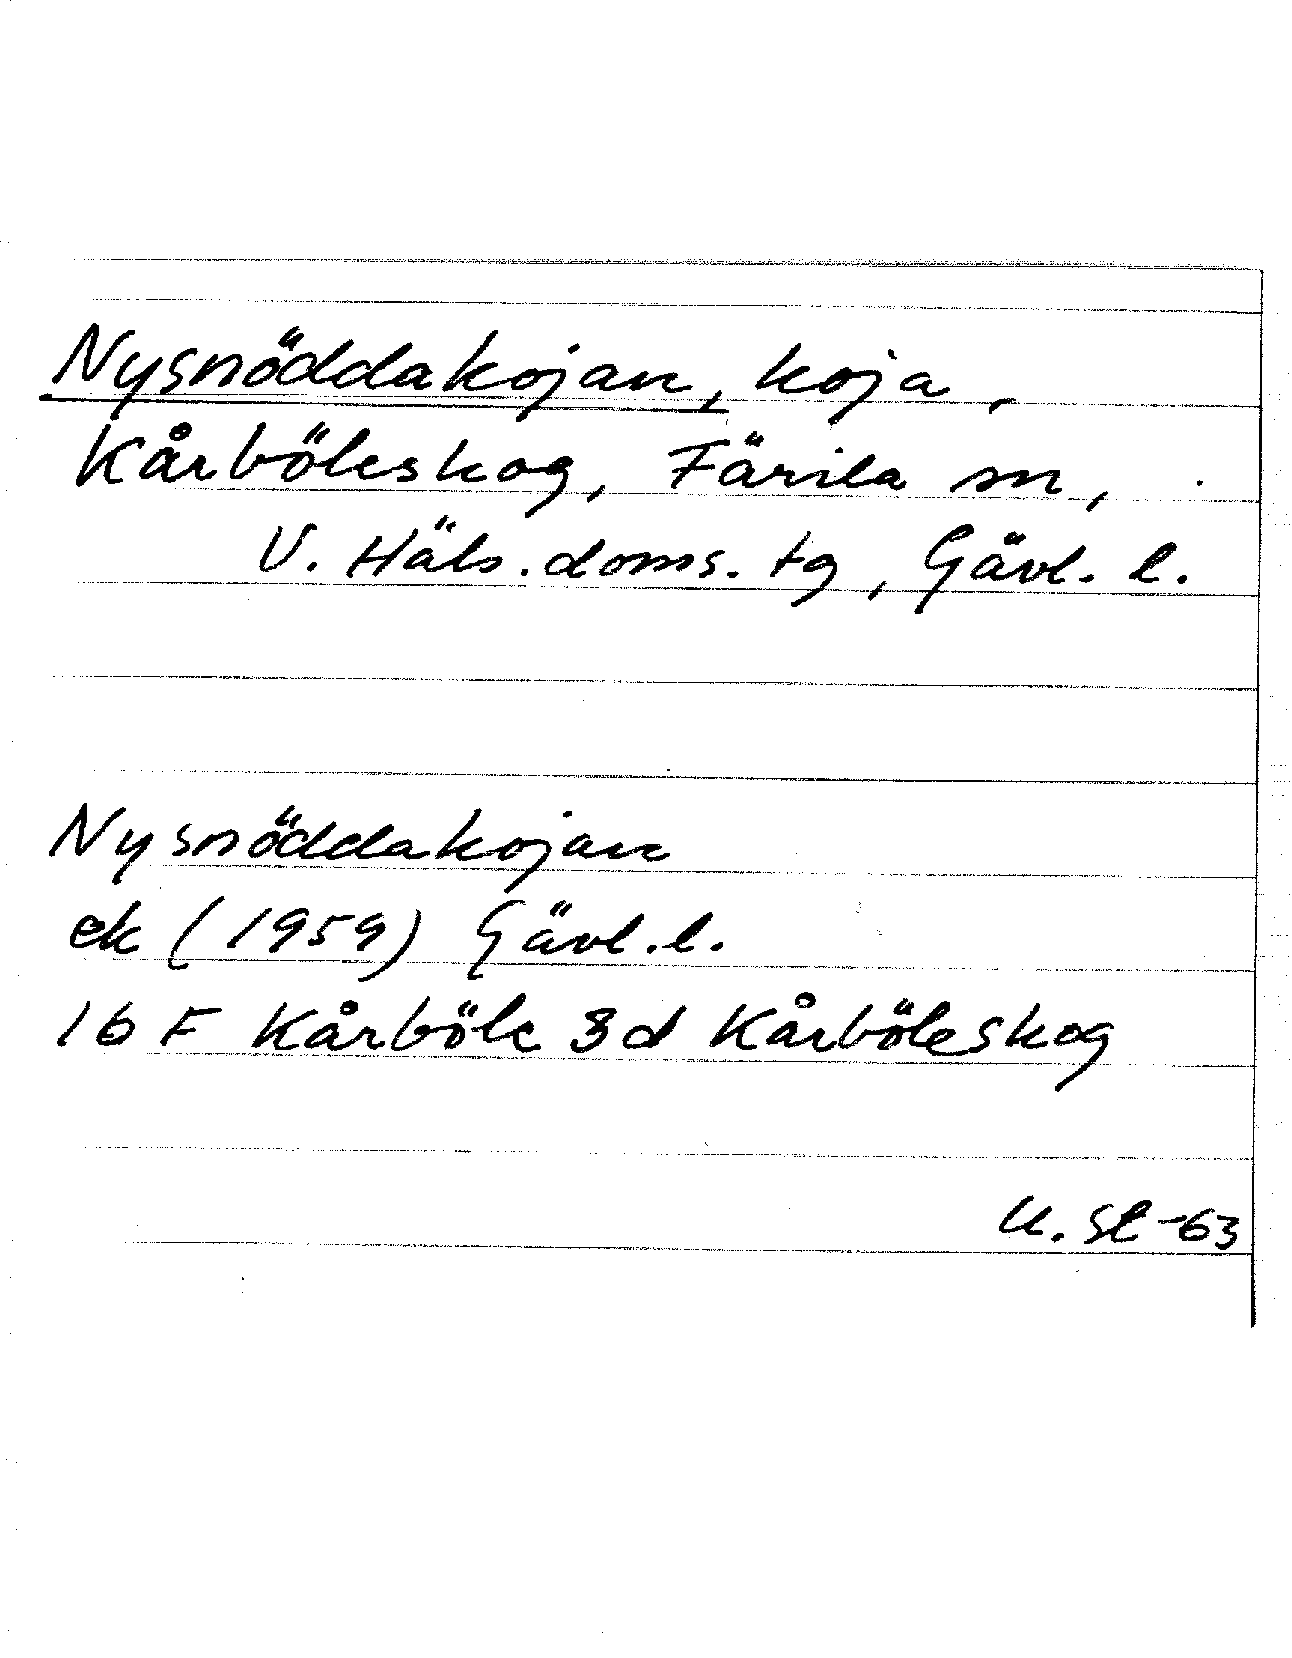 Nysnöddakojan, koja,
Kårböleskog, Färila sn,
V. Häls. doms. tg, Gävl. l.
Nysnöddakojan
ek (1959) Gävl. l.
16 F Kårböle 3d Kårböleskog
U. Sl -63